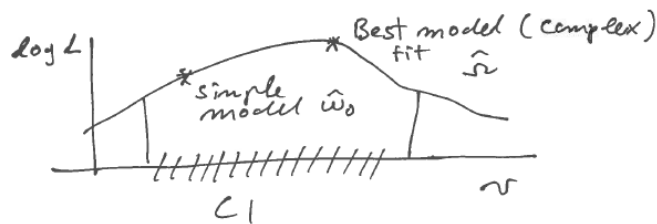 log L
Best model (complex)
fit
Ω̂
simple
model ω̂₀
CI